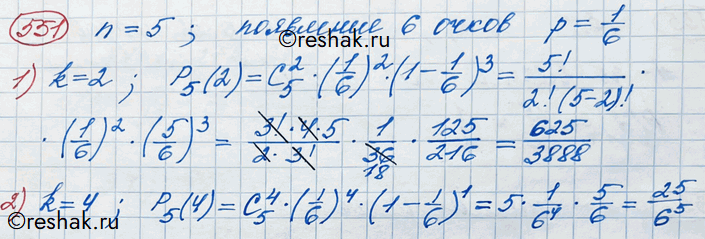 551 n = 5 ; появление 6 очков p = 1/6
©reshak.ru
1) k = 2 ; P₅(2) = C₅² · (1/6)² · (1 - 1/6)³ = 5!/(2!(5-2)!) ·
· (1/6)² · (5/6)³ = (3! · 4 · 5)/(2 · 3!) · 1/36 18 · 125/216 = 625/3888
©reshak.ru
2) k = 4 ; P₅(4) = C₅⁴ · (1/6)⁴ · (1 - 1/6)¹ = 5 · 1/6⁴ · 5/6 = 25/6⁵